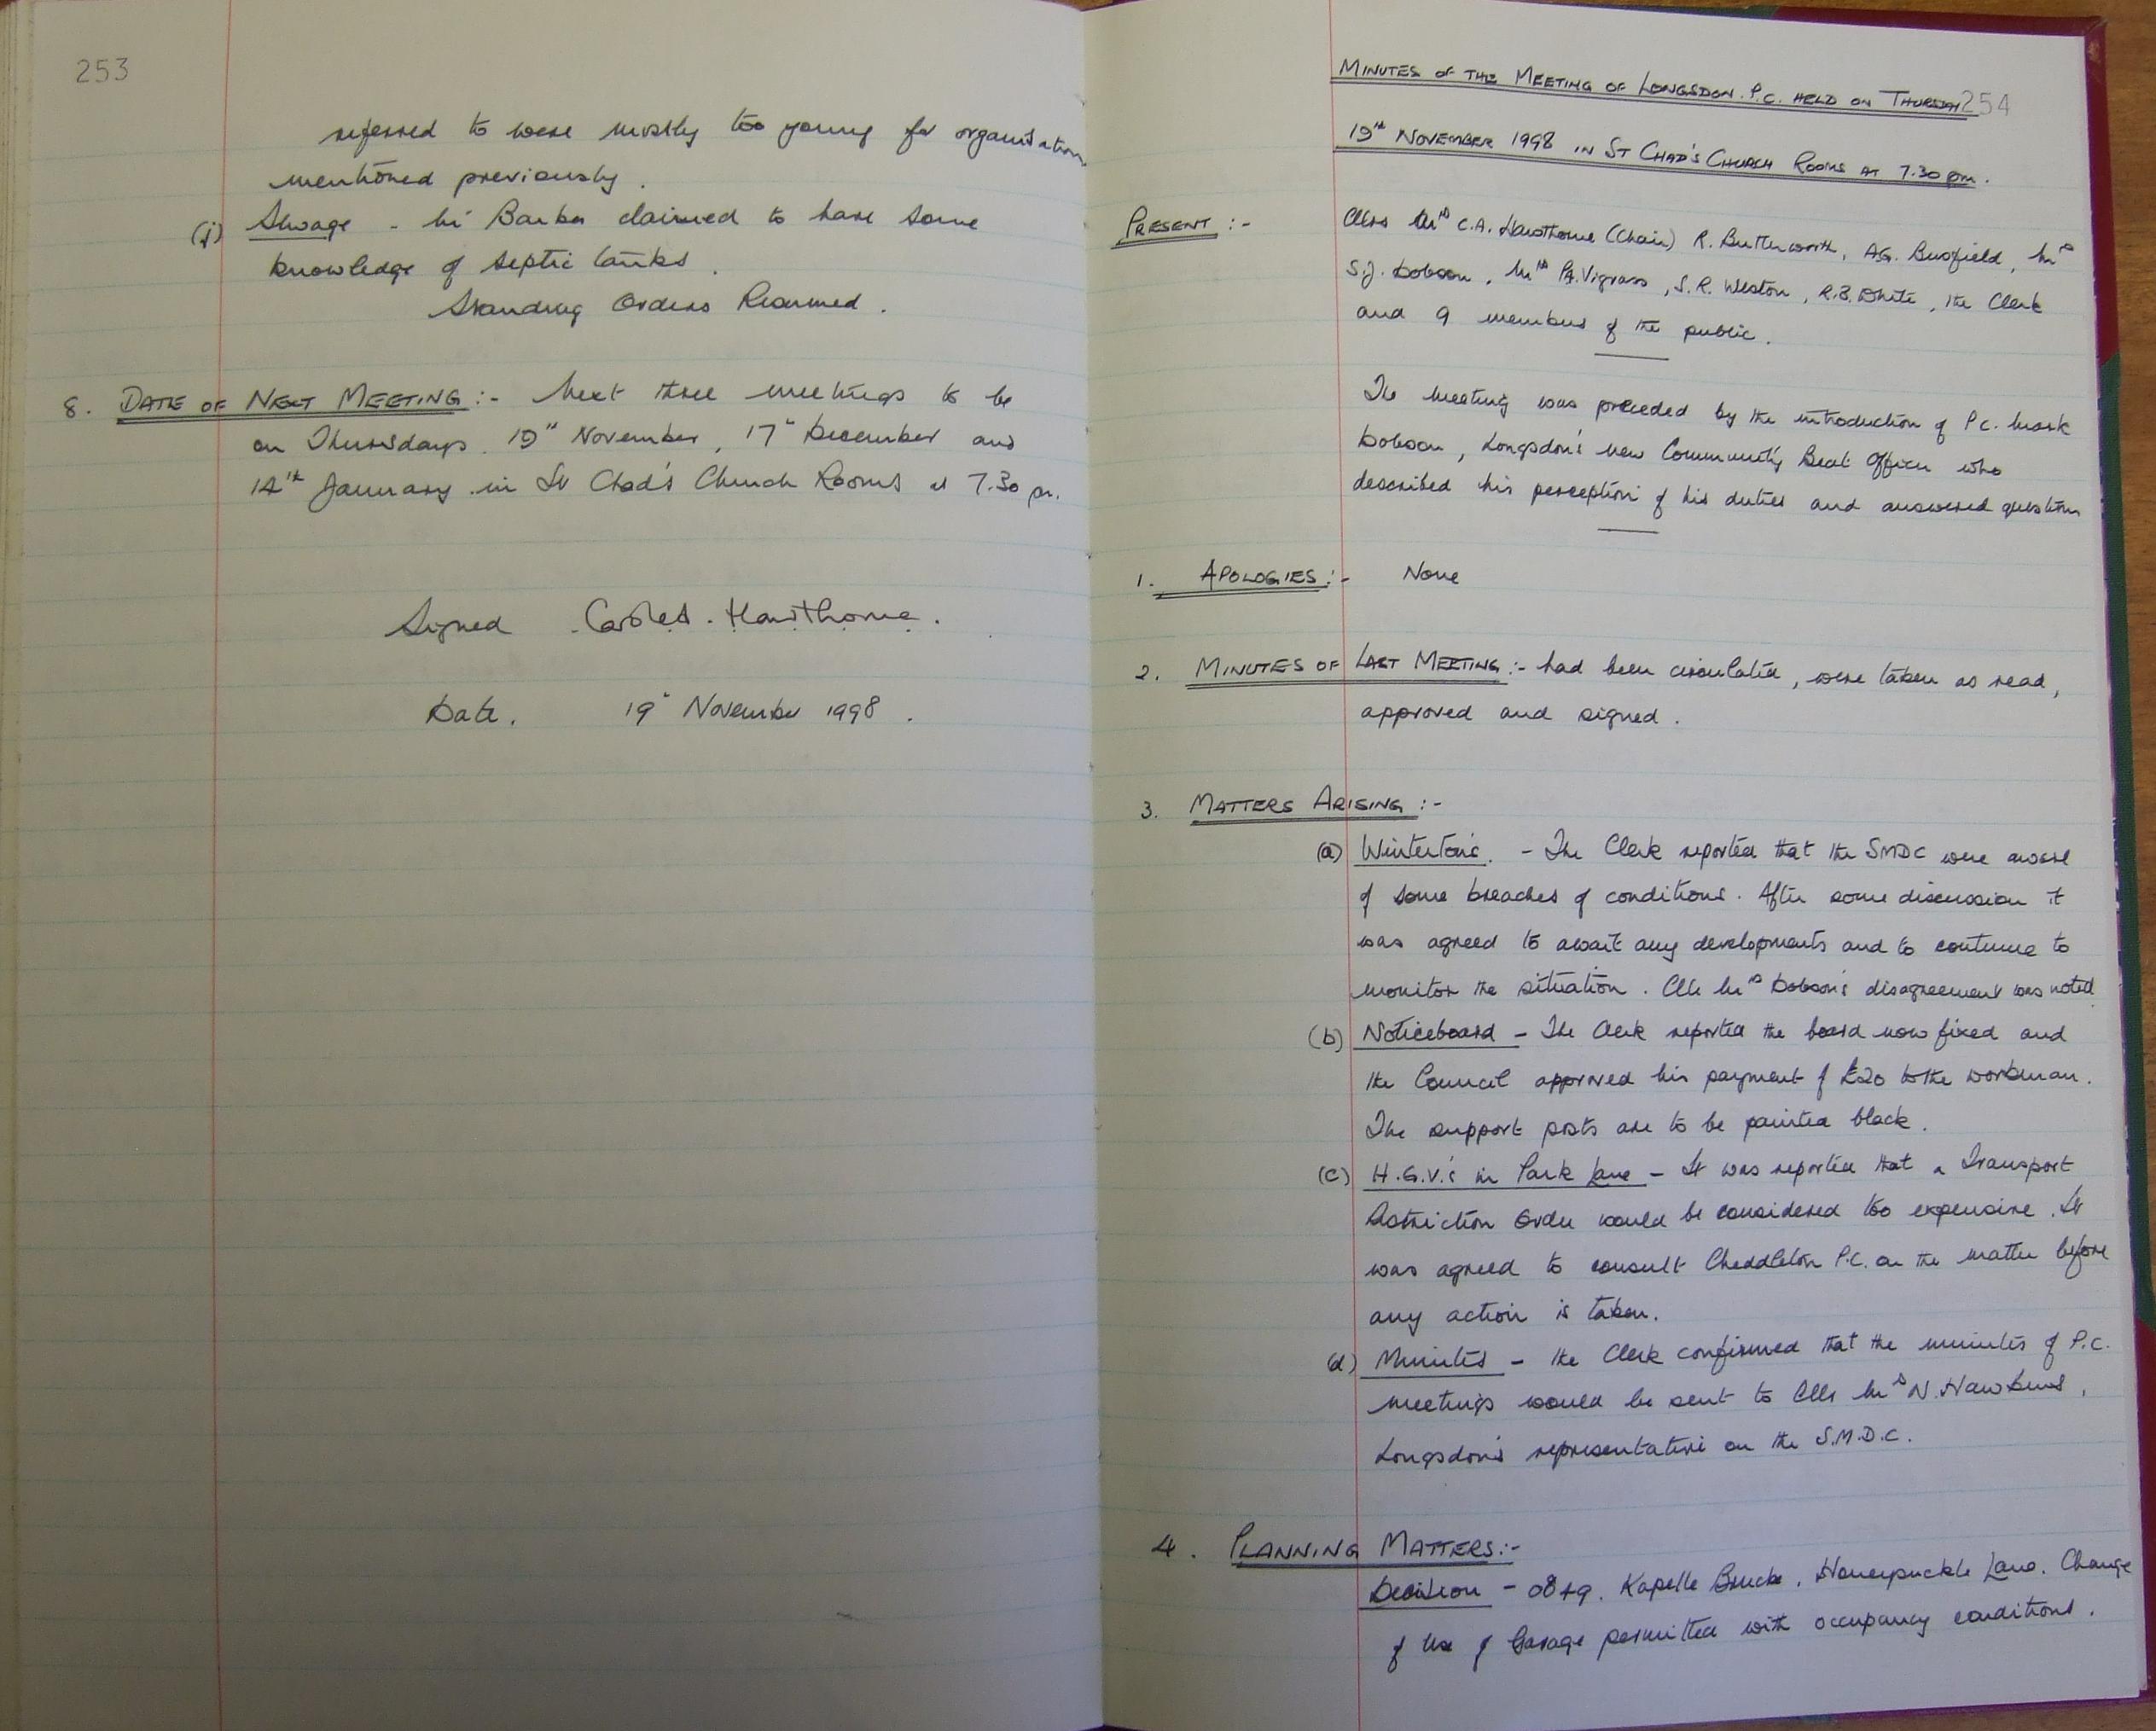 253
referred to were mostly too young for organisations
mentioned previously.
(j) Sewage - Mr Barber claimed to have some
knowledge of septic tanks.
Standing Orders Resumed.
8. DATE OF NEXT MEETING :- Next three meetings to be
on Thursdays, 19th November, 17th December and
14th January in St Chad's Church Rooms at 7.30 pm.
Signed Hawthorne.
Date. 19th November 1998.
MINUTES OF THE MEETING OF LONGSDON P.C. HELD ON THURSDAY 254
19th NOVEMBER 1998 IN ST CHAD'S CHURCH ROOMS AT 7.30 pm.
PRESENT :- Cllrs Mrs C.A. Hawthorne (Chair) R. Butterworth, A.G. Busfield, Mrs
S.J. Dobson, Mrs P.A. Vigrass, S.R. Weston, R.B. White, the Clerk
and 9 members of the public.
The meeting was preceded by the introduction of P.C. Mark
Dobson, Longsdon's new Community Beat Officer who
described his perception of his duties and answered questions
1. APOLOGIES :- None
2. MINUTES OF LAST MEETING :- had been circulated, were taken as read,
approved and signed.
3. MATTERS ARISING :-
(a) Winterton's. - The Clerk reported that the SMDC were aware
of some breaches of conditions. After some discussion it
was agreed to await any developments and to continue to
monitor the situation. Cllr Mrs Dobson's disagreement was noted
(b) Noticeboard - The Clerk reported the board now fixed and
the Council approved his payment of £20 to the workman.
The support posts are to be painted black.
(c) H.G.V.'s in Park Lane - It was reported that a Transport
Restriction Order would be considered too expensive. It
was agreed to consult Cheddleton P.C. on the matter before
any action is taken.
(d) Minutes - the Clerk confirmed that the minutes of P.C.
meetings would be sent to Cllr Mrs N. Hawkins,
Longsdon's representative on the S.M.D.C.
4. PLANNING MATTERS :-
Decision - Kapelle Brucke, Honeysuckle Lane. Change
of Use of Garage permitted with occupancy conditions.